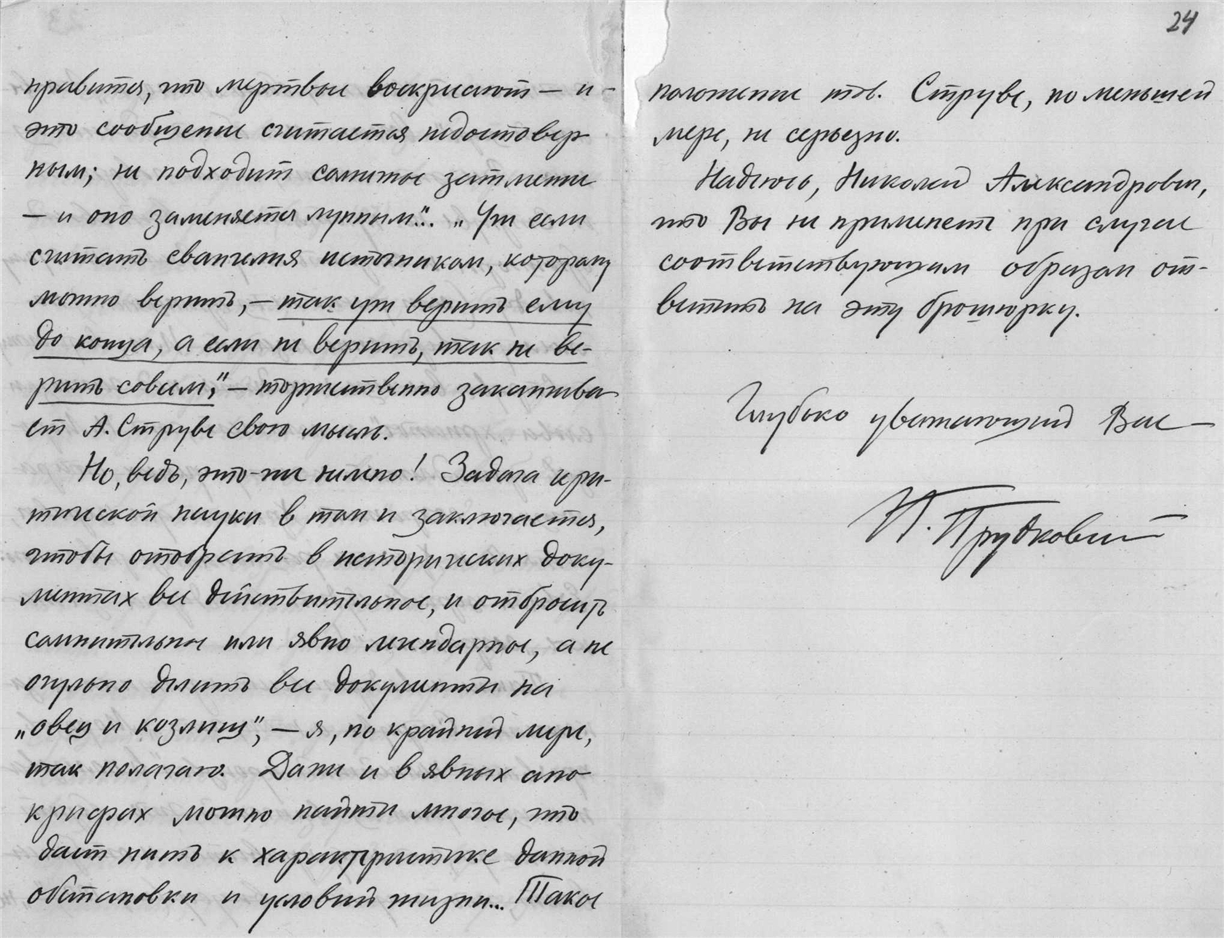 нравится, что мертвые воскрисают — и -
это сообщение считается недостовер-
ным; не подходит солнечное затмение
— и оно заменяется лунным"... „Уж если
считать евангелия источником, которому
можно верить, — так уж верить ему
до конца, а если не верить, так не ве-
рить совсем", — торжественно заканчива-
ет А. Струве свою мысль.
Но, ведь, это-же нелепо! Задача кри-
тической науки в том и заключается,
чтобы отобрать в исторических доку-
ментах все действительное, и отбросить
сомнительное или явно легендарное, а не
огульно делить все документы на
„овец и козлищ", — я, по крайней мере,
так полагаю. Даже и в явных апо-
крифах можно найти многое, что
даст нить к характеристике данной
обстановки и условий жизни... Такое
24
положение тов. Струве, по меньшей
мере, не серьезно.
Надеюсь, Николай Александрович,
что Вы не применете при случае
соответствующим образом от-
ветить на эту брошюрку.
Глубоко уважающий Вас —
Н. Прудковский